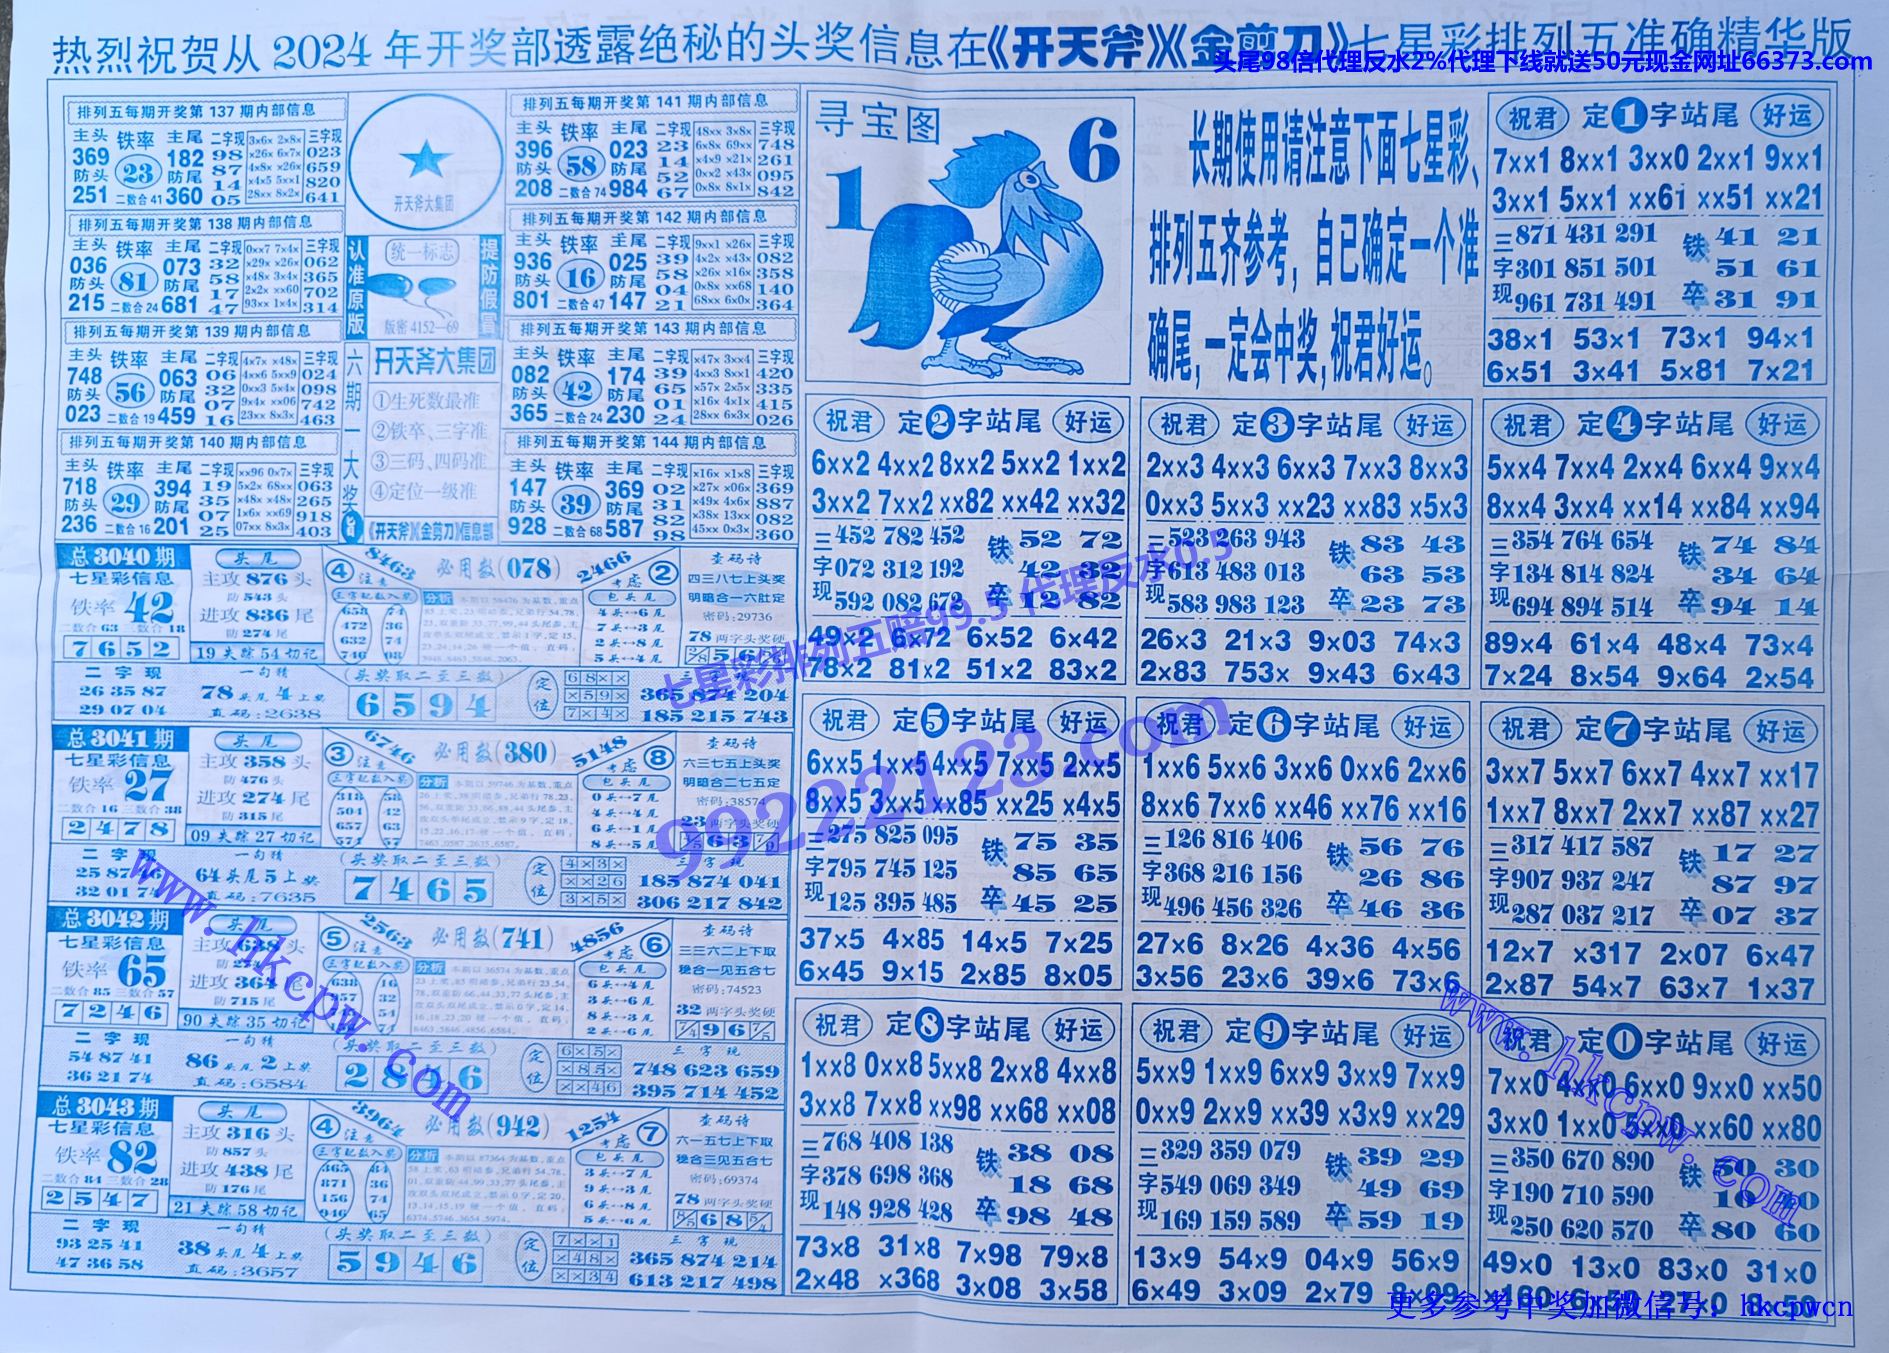 热烈祝贺从2024年开奖部透露绝秘的头奖信息在《开天斧》《金剪刀》七星彩排列五准确精华版
头尾98倍代理反水2%代理下线就送50元现金网址66373.com
排列五每期开奖第137期内部信息
主头 铁率 主尾 二字现 三字现
369 23 182
防头 防尾
251 二数合41 360
98 87 14 05
3x6x 2x8x
x26x 6x7x
4x8x x26x
x4x5 5xx1
28xx 8x2x
023 659 820 641
排列五每期开奖第138期内部信息
主头 铁率 主尾 二字现 三字现
036 81 073
防头 防尾
215 二数合24 681
32 58 17 47
0xx7 7x4x
x29x x26x
x48x 3x4x
2x2x xx60
93xx 1x4x
062 365 702 314
排列五每期开奖第139期内部信息
主头 铁率 主尾 二字现 三字现
748 56 063
防头 防尾
023 二数合19 459
06 32 07 16
4x7x x48x
4xx6 5xx9
0xx3 5x4x
9x4x xx06
23xx 8x3x
024 098 742 463
排列五每期开奖第140期内部信息
主头 铁率 主尾 二字现 三字现
718 29 394
防头 防尾
236 二数合16 201
19 35 07 25
xx96 0x7x
5x2x 68xx
x48x x48x
1x6x xx69
07xx 8x3x
063 265 918 403
开天斧大集团
认准原版
统一标志
提防假冒
版密4152—69
六期一大奖
开天斧大集团
①生死数最准
②铁卒、三字准
③三码、四码准
④定位一级准
《开天斧》《金剪刀》信息部
排列五每期开奖第141期内部信息
主头 铁率 主尾 二字现 三字现
396 58 023
防头 防尾
208 二数合74 984
23 14 52 67
48xx 3x8x
6x8x 69xx
x4x9 x21x
0xx2 x43x
0x8x 8x1x
748 261 095 842
排列五每期开奖第142期内部信息
主头 铁率 主尾 二字现 三字现
936 16 025
防头 防尾
801 二数合47 147
39 58 04 21
9xx1 x26x
4x2x x43x
x26x x16x
0x8x xx68
68xx 6x0x
082 358 140 364
排列五每期开奖第143期内部信息
主头 铁率 主尾 二字现 三字现
082 42 174
防头 防尾
365 二数合24 230
39 65 01 24
x47x 3xx4
4xx3 8xx1
x57x 2x5x
x16x 4x1x
28xx 6x3x
420 335 415 026
排列五每期开奖第144期内部信息
主头 铁率 主尾 二字现 三字现
147 39 369
防头 防尾
928 二数合68 587
02 31 82 98
x16x x1x8
x27x x06x
x49x 4x6x
x38x 13xx
45xx 0x3x
369 887 082 360
寻宝图
1 6
长期使用请注意下面七星彩、
排列五齐参考，自已确定一个准
确尾，一定会中奖，祝君好运。
祝君 定1字站尾 好运
7××1 8××1 3××0 2××1 9××1
3××1 5××1 ××61 ××51 ××21
三字现 871 431 291
301 851 501
961 731 491
铁卒 41 21
51 61
31 91
38×1 53×1 73×1 94×1
6×51 3×41 5×81 7×21
祝君 定2字站尾 好运
6××2 4××2 8××2 5××2 1××2
3××2 7××2 ××82 ××42 ××32
三字现 452 782 452
072 312 192
592 082 672
铁卒 52 72
42 32
12 82
49×2 6×72 6×52 6×42
78×2 81×2 51×2 83×2
祝君 定3字站尾 好运
2××3 4××3 6××3 7××3 8××3
0××3 5××3 ××23 ××83 ×5×3
三字现 523 263 943
613 483 013
583 983 123
铁卒 83 43
63 53
23 73
26×3 21×3 9×03 74×3
2×83 753× 9×43 6×43
祝君 定4字站尾 好运
5××4 7××4 2××4 6××4 9××4
8××4 3××4 ××14 ××84 ××94
三字现 354 764 654
134 814 824
694 894 514
铁卒 74 84
34 64
94 14
89×4 61×4 48×4 73×4
7×24 8×54 9×64 2×54
祝君 定5字站尾 好运
6××5 1××5 4××5 7××5 2××5
8××5 3××5 ××85 ××25 ×4×5
三字现 275 825 095
795 745 125
125 395 485
铁卒 75 35
85 65
45 25
37×5 4×85 14×5 7×25
6×45 9×15 2×85 8×05
祝君 定6字站尾 好运
1××6 5××6 3××6 0××6 2××6
8××6 7××6 ××46 ××76 ××16
三字现 126 816 406
368 216 156
496 456 326
铁卒 56 76
26 86
46 36
27×6 8×26 4×36 4×56
3×56 23×6 39×6 73×6
祝君 定7字站尾 好运
3××7 5××7 6××7 4××7 ××17
1××7 8××7 2××7 ××87 ××27
三字现 317 417 587
907 937 247
287 037 217
铁卒 17 27
87 97
07 37
12×7 ×317 2×07 6×47
2×87 54×7 63×7 1×37
祝君 定8字站尾 好运
1××8 0××8 5××8 2××8 4××8
3××8 7××8 ××98 ××68 ××08
三字现 768 408 138
378 698 368
148 928 428
铁卒 38 08
18 68
98 48
73×8 31×8 7×98 79×8
2×48 ×368 3×08 3×58
祝君 定9字站尾 好运
5××9 1××9 6××9 3××9 7××9
0××9 2××9 ××39 ×3×9 ××29
三字现 329 359 079
549 069 349
169 159 589
铁卒 39 29
49 69
59 19
13×9 54×9 04×9 56×9
6×49 3×09 2×79
祝君 定0字站尾 好运
7××0 4××0 6××0 9××0 ××50
3××0 1××0 5××0 ××60 ××80
三字现 350 670 890
190 710 590
250 620 570
铁卒 30
80 60
49×0 13×0 83×0 31×0
总3040期
七星彩信息
铁率42
二数合63 三数合18
7652
头尾
主攻876头
防543头
进攻836尾
防274尾
19失踪54切记
④注意 8463 必用数(078) 2466 考虑②
三字配数入奖
658 74
472 36
632 34
746 08
分析
包头尾
4头↔6尾
7头↔3尾
2头↔8尾
5头↔4尾
查码诗
四三八七上头奖
明暗合一六肚定
密码:29736
78两字头奖硬
二字现
26 35 87
29 07 04
一句精
78头尾4上奖
直码:2638
(头奖取二至三数)
6594
定位
68××
×59×
7×4×
365 874 204
185 215 743
总3041期
七星彩信息
铁率27
二数合16 三数合38
2478
头尾
主攻358头
防476头
进攻274尾
防315尾
09失踪27切记
③注意 6746 必用数(380) 5148 考虑⑧
三字配数入奖
318 58
504 42
657 63
574 57
分析
包头尾
0头↔7尾
4头↔4尾
6头↔1尾
8头↔5尾
查码诗
六三七五上头奖
明暗合二七五定
密码:38574
23两字头奖硬
二字现
25 87 46
32 01 74
一句精
64头尾5上奖
直码:7635
(头奖取二至三数)
7465
定位
4×3×
××26
3×5×
三字现
185 874 041
306 217 842
总3042期
七星彩信息
铁率65
二数合85 三数合57
7246
头尾
主攻638头
进攻364尾
防715尾
90失踪35切记
⑤注意 2563 必用数(741) 4856 考虑⑥
三字配数入奖
分析
包头尾
6头↔4尾
3头↔6尾
8头↔3尾
2头↔6尾
查码诗
三三六二上下取
稳合一见五合七
密码:74523
32两字头奖硬
二字现
54 87 41
36 21 74
一句精
86头尾2上奖
直码:6584
(头奖取二至三数)
2896
定位
6×5×
×85×
××46
三字现
748 623 659
395 714 452
总3043期
七星彩信息
铁率82
二数合84 三数合28
2547
头尾
主攻316头
防857头
进攻438尾
防176尾
21失踪58切记
④注意 3964 必用数(942) 1254 考虑⑦
三字配数入奖
365 84
871 36
156 74
946 65
分析
包头尾
3头↔7尾
9头↔3尾
6头↔8尾
5头↔6尾
查码诗
六一五七上下取
稳合三见五合七
密码:69374
78两字头奖硬
二字现
93 25 41
47 36 58
一句精
38头尾4上奖
直码:3657
(头奖取二至三数)
5946
定位
7××1
×48×
××34
三字现
365 874 214
613 217 498
七星彩排列五赔99.5代理反水0.5
99222123.com
www.hkcpw.com
www.hkcpw.com
更多参考中奖加微信号：hkcpwcn